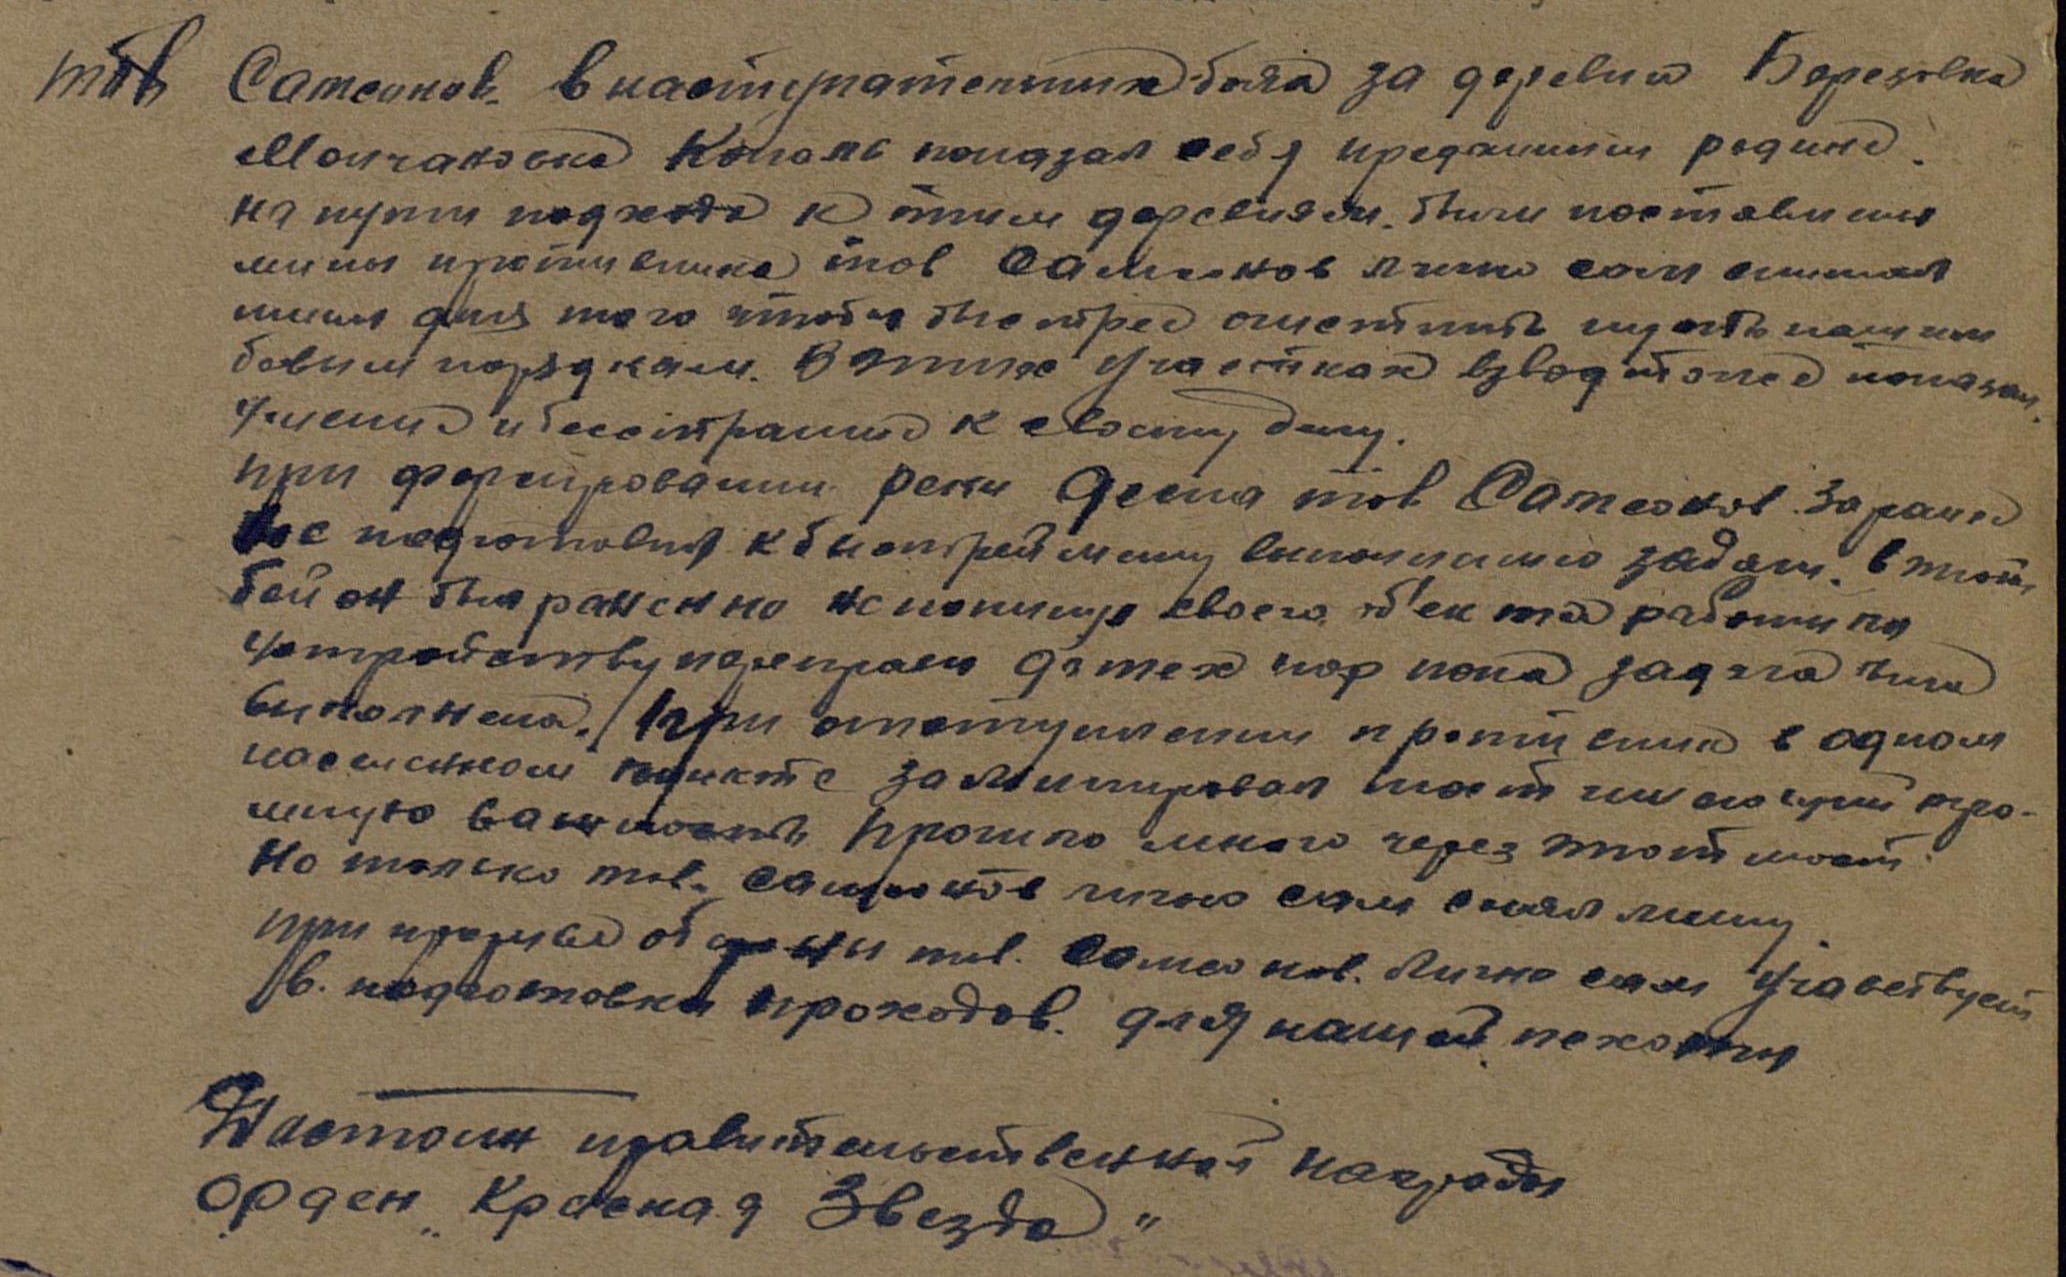 тов Самсонов. в наступательных боях за деревни Березовка
Молчановка Кополь показал себя преданным родине.
на пути подхода к этим деревням. были поставлены
мины противника тов Самсонов лично сам снимал
мины для того чтобы быстрее очистить путь нашим
боевым порядкам. В этих участках взвод тоже показал
умение и бесстрашие к своему делу.
при форсировании реки Десна тов Самсонов. Заранее
все подготовил к быстрейшему выполнению задачи. в этот
бой он был ранен но не покинул своего об'екта работы по
устройству переправы до тех пор пока задача была
выполнена. При отступлении противник в одном
населенном пункте заминировал мост имеющий огро-
мную важность прошло много через этот мост.
Но только тов. Самсонов лично сам снял мину.
при прорыве обороны тов. Самсонов. Лично сам участвует
в. подготовки проходов. для нашей пехоты
Достоин правительственной награды
орден „Красная Звезда"